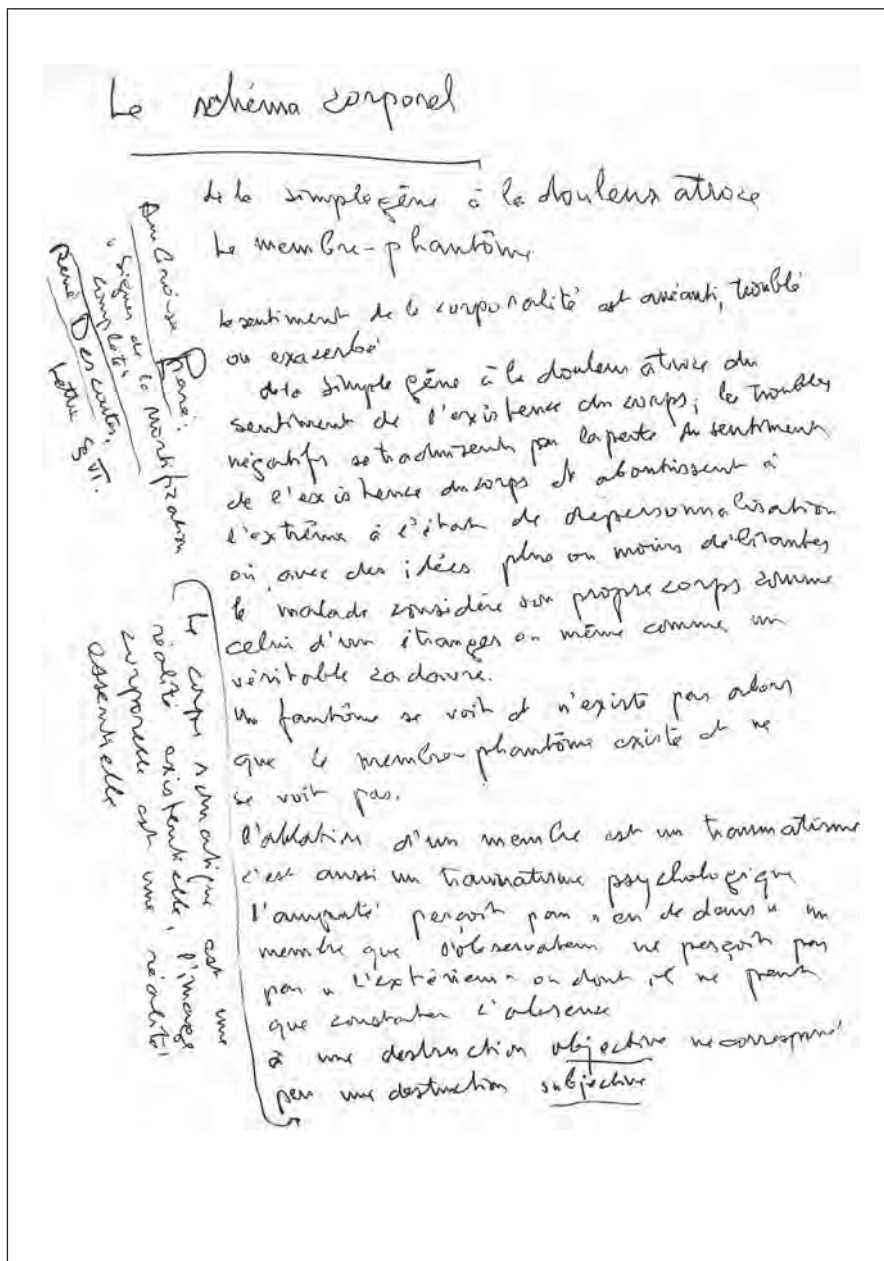 Le schéma corporel
de la simple gêne à la douleur atroce
Le membre-phantôme
Le sentiment de la corporalité est anéanti, troublé
ou exacerbé
de la simple gêne à la douleur atroce du
sentiment de l'existence du corps; les troubles
négatifs se traduisent par la perte du sentiment
de l'existence du corps et aboutissent à
l'extrême à l'état de dépersonnalisation
où avec des idées plus ou moins délirantes
le malade considère son propre corps comme
celui d'un étranger ou même comme un
véritable cadavre.
Un fantôme se voit et n'existe pas alors
que le membre-phantôme existe et ne
se voit pas.
l'ablation d'un membre est un traumatisme
c'est aussi un traumatisme psychologique
l'amputé perçoit par "en dedans" un
membre que l'observateur ne perçoit pas
par "l'extérieur" ou dont il ne peut
que constater l'absence
à une destruction objective ne correspond
pas une destruction subjective
Ambroise Paré:
"signes de la mortification
complète"
René Descartes,
Lettre § VI.
Le corps somatique est une
réalité existentielle, l'image
corporelle est une réalité
essentielle